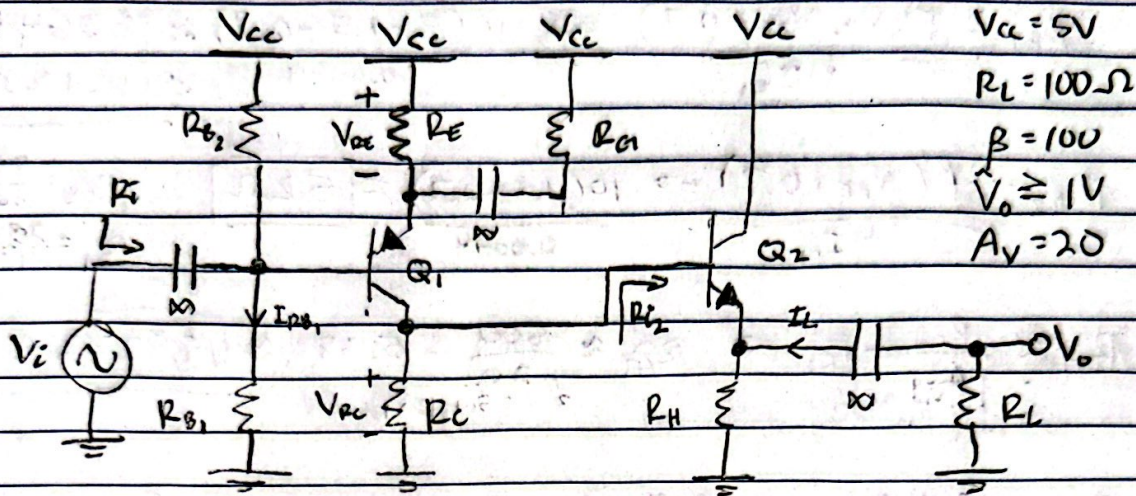 Vcc Vcc Vcc Vcc
Vcc = 5V
RL = 100Ω
β = 100
V̂o ≥ 1V
Av = 20
RB2
+
VRE
-
RE
RG1
Ri
∞
∞
Q1
Q2
IRB1
Ri2
IL
Vi
RB1
+
VRC
-
RC
RH
∞
Vo
RL